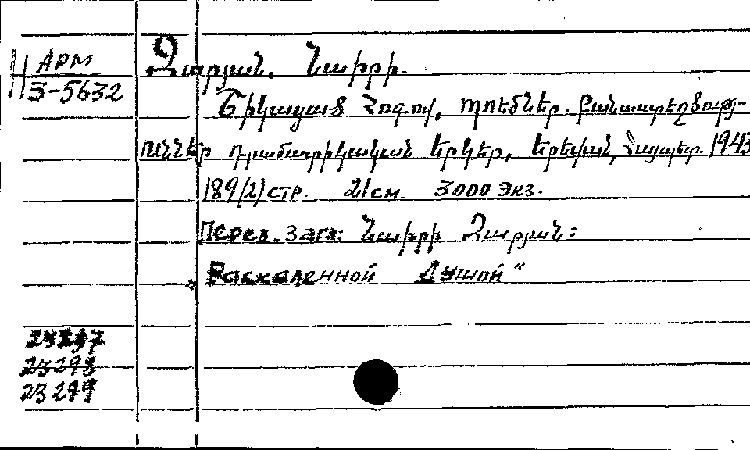 АРМ
З-5632
Զարյան, Նաիրի.
Շիկացած հոգով, պոեմներ. բանաստեղծությ-
ուններ դրամատիկական երկեր, Երևան, Հայպետ. 1943
189/2/ стр. 21 см 3000 экз.
Перев. загл: Նաիրի Զարյան:
„Раскаленной душой"
23297
23298
23299